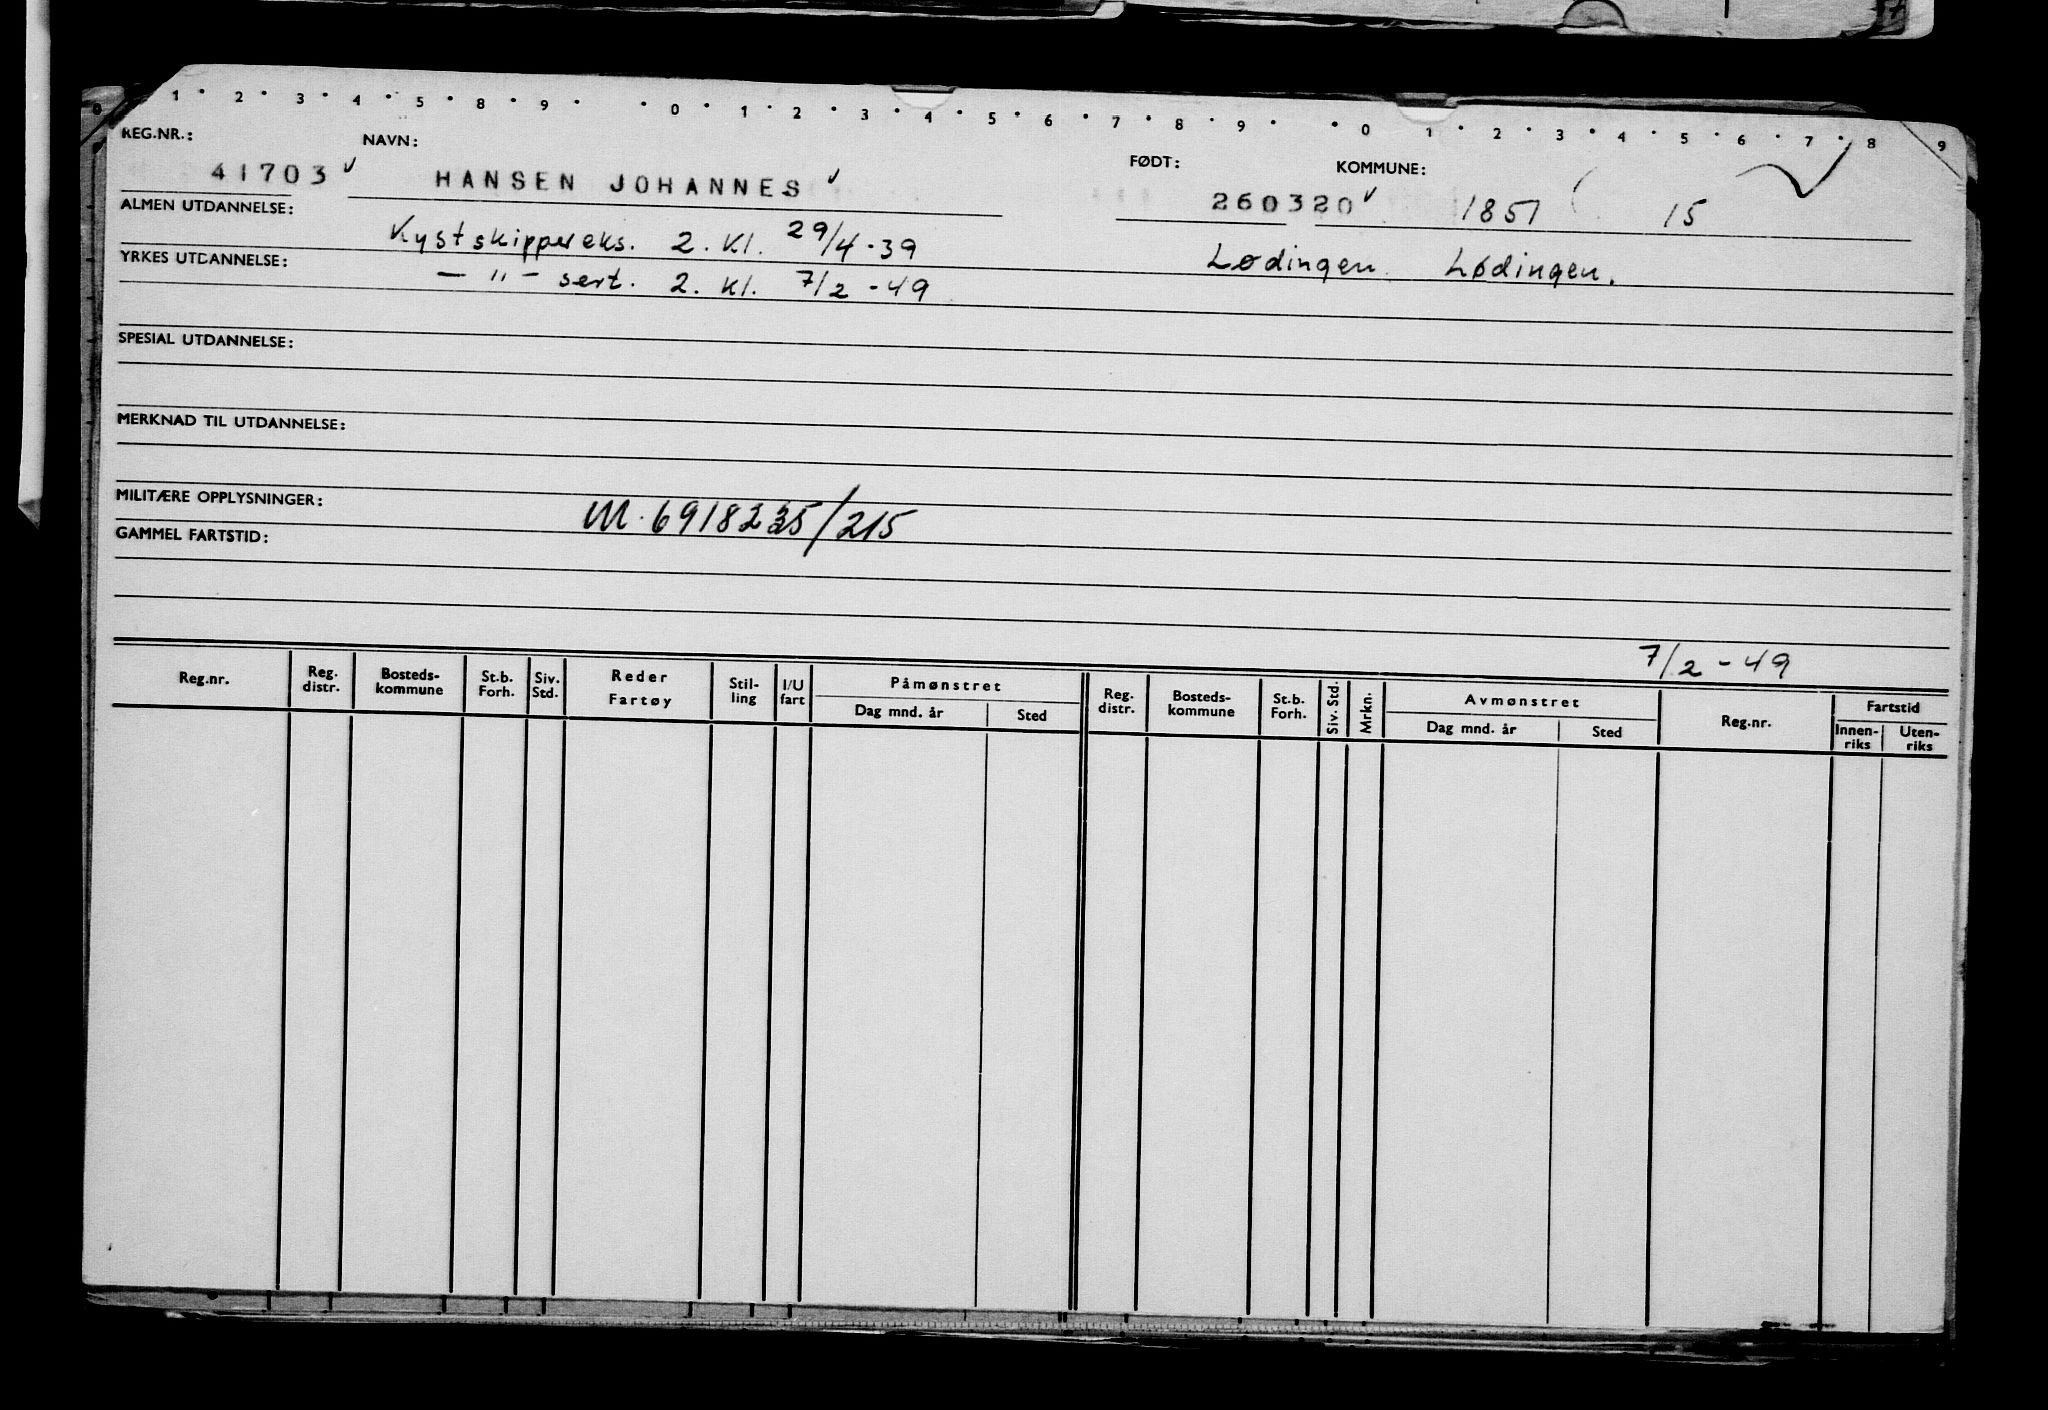 0 1 2 3 4 5 8 9 0 1 2 3 4 5 6 7 8 9 0 1 2 3 4 5 6 7 8 9
REG.NR.: NAVN: FØDT: KOMMUNE:
41703 HANSEN JOHANNES 260320 1851 15
ALMEN UTDANNELSE: Kystskippereks. 2. Kl. 29/4-39 Lødingen Lødingen.
YRKES UTDANNELSE: — " — sert. 2. Kl. 7/2 - 49
SPESIAL UTDANNELSE:
MERKNAD TIL UTDANNELSE:
MILITÆRE OPPLYSNINGER: M. 6918235/215
GAMMEL FARTSTID:
7/2 - 49
Reg.nr. Reg. distr. Bosteds-kommune St.b. Forh. Siv. Std. Reder Fartøy Stil-ling I/U fart Påmønstret Dag mnd. år Sted Reg. distr. Bosteds-kommune St.b. Forh. Siv. Std. Mrkn. Avmønstret Dag mnd. år Sted Reg.nr. Fartstid Innen-riks Uten-riks